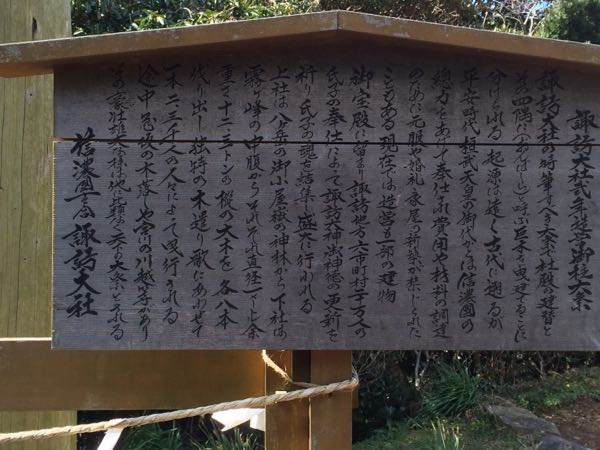 諏訪大社式年造営御柱大祭
諏訪大社の時筆すべき大祭で社殿の建替と
其の四隅に「おんばしら」と呼ぶ巨木を曳建てることに
分けられる 起源は遠く古代に遡るが
平安時代桓武天皇の御代からは信濃國の
総力をあげて奉仕され費用や材料の調達
のために元服や婚礼 家屋の新築が禁じられた
こともある 現在では造営も一部の建物
御宝殿に留まり諏訪地方六市町村二十万人の
氏子の奉仕によって諏訪大神の御神徳の更新を
祈り氏子の魂を結集し盛大に行われる
上社は八ヶ岳の御小屋嶽の神林から下社は
霧ヶ峰の中腹からそれぞれ直径一米余
重さ十二三トンの樅の大木を各八本
伐り出し独特の木遣り歌にあわせて
一本二三千人の人々によって曳行される
途中急坂の木落しや宮川の川越等があり
其の豪壮雄大な様は他に類なき大祭とされる
信濃國一之宮 諏訪大社